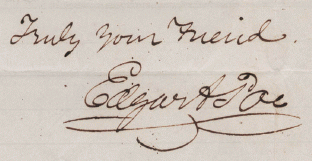 Truly Your Friend.
Edgar A Poe